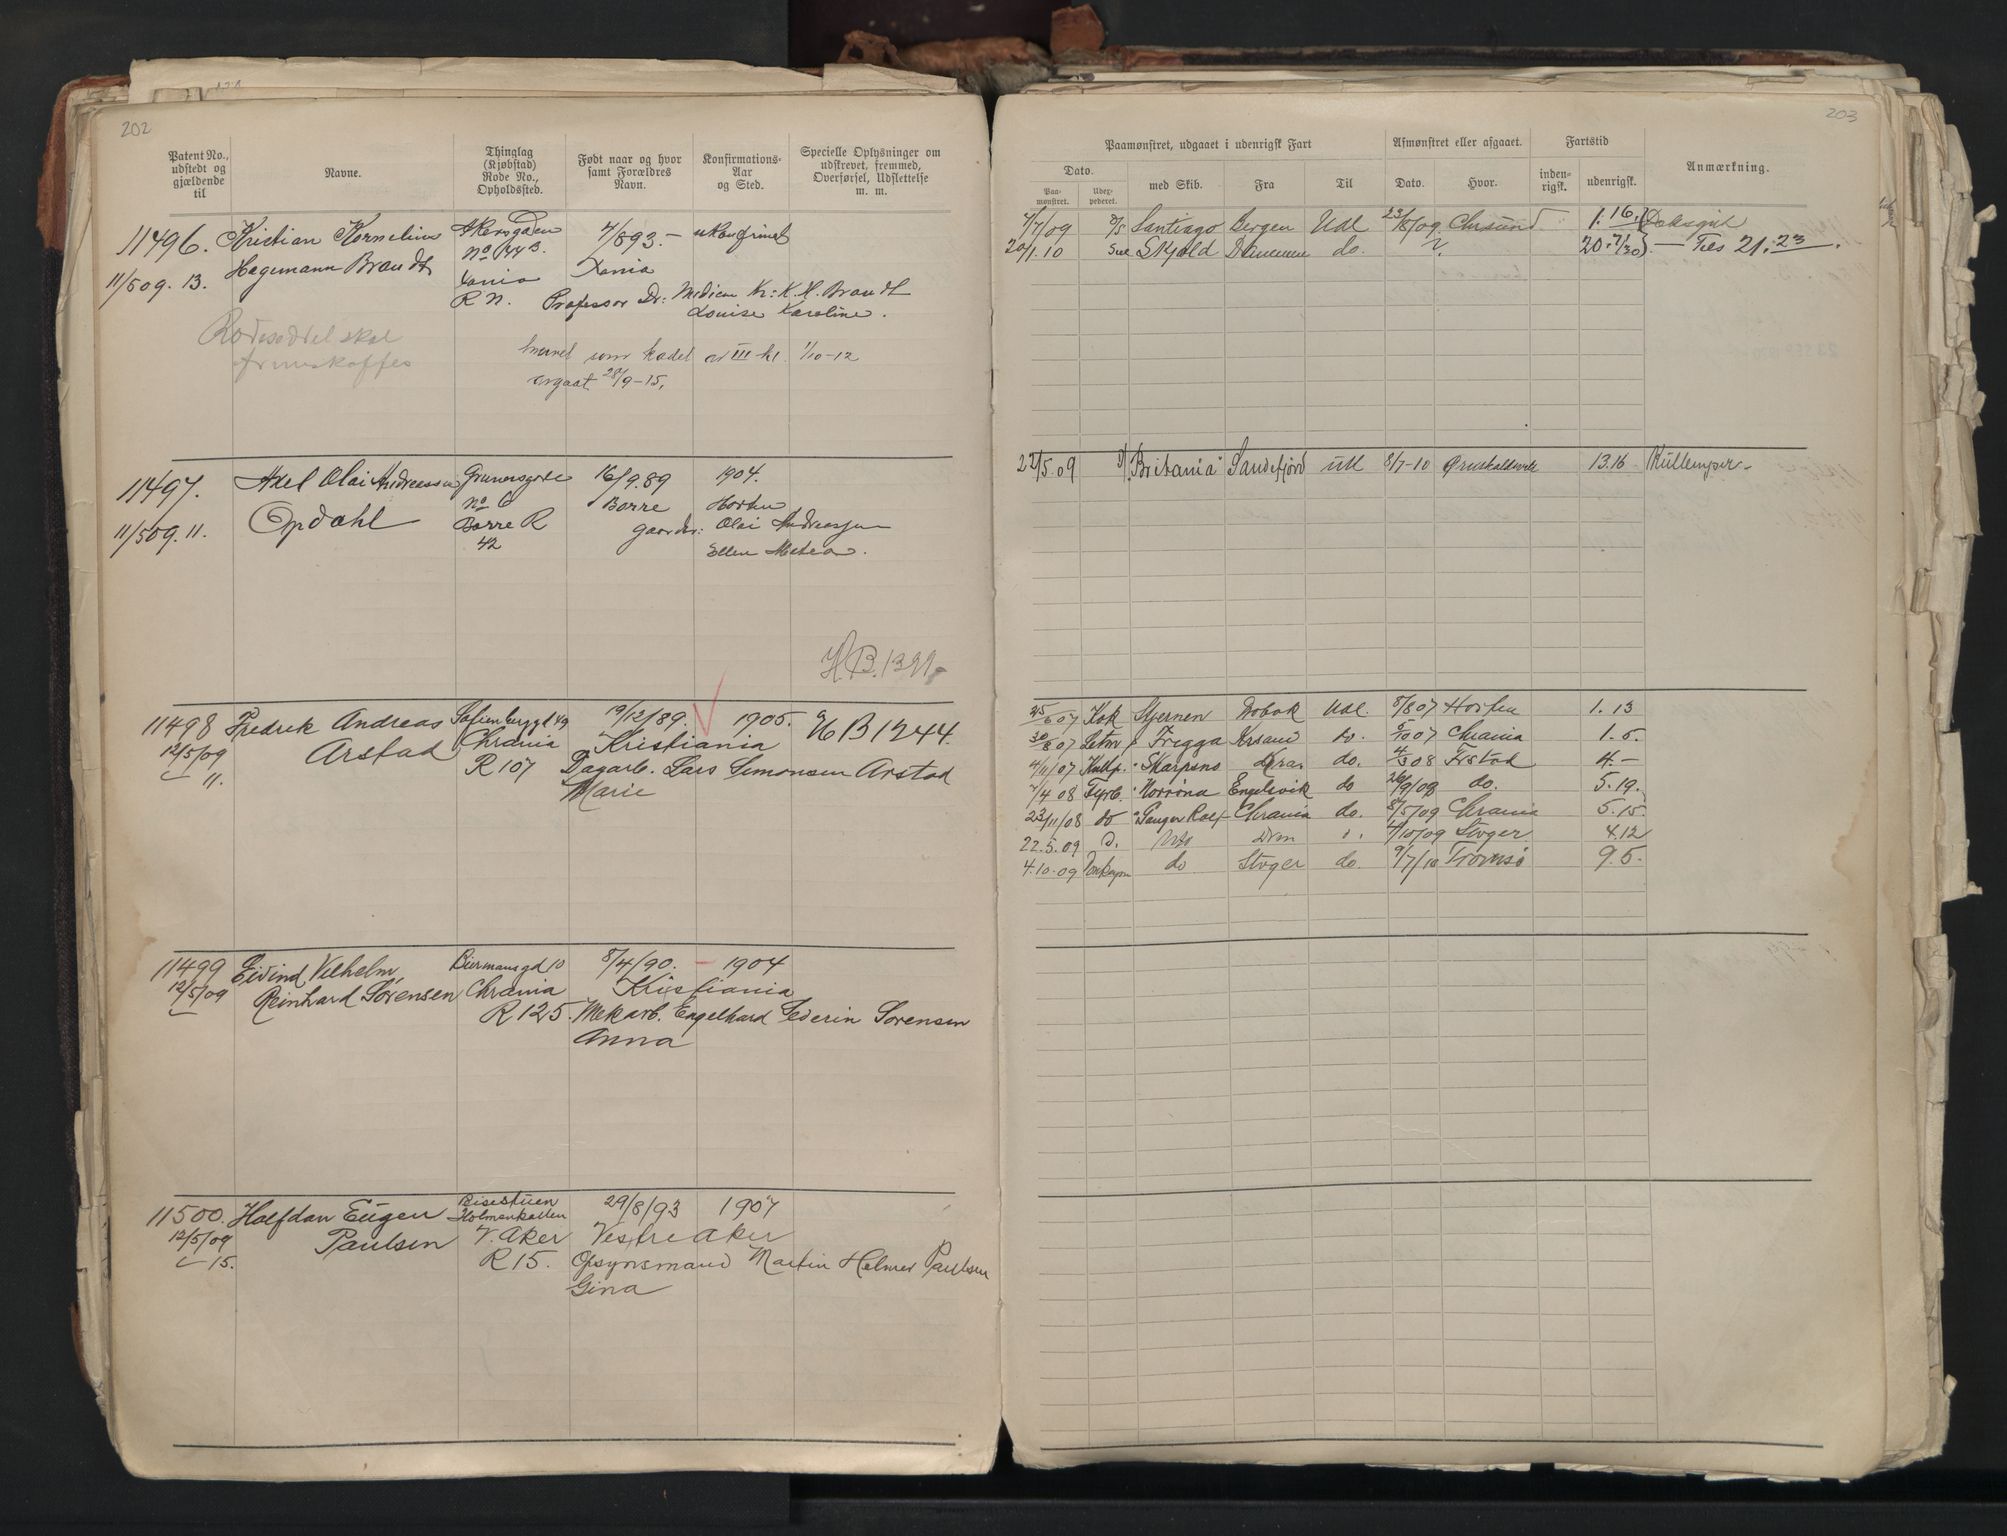 202
Patent No., udstedt og gjældende til
Navne.
Thinglag (Kjøbstad) Rode No., Opholdssted.
Født naar og hvor samt Forældres Navn.
Konfirmations-Aar og Sted.
Specielle Oplysninger om udskrevet, fremmed, Overførsel, Udslettelse m. m.
11496. Kristian Kornelius Akersgaden 4/893. – ukonfirmet
11/509. 13. Hagemann Brandt No 44 B.
Xania Xania
R N. Professor Dr: Medicin Kr: K. H. Brandt
Louise Karoline.
Rodeseddel skal
som kadet av III kl. 1/10-12
28/9-15.
11497. Axel Olai Andreassen Grunersgade 16/9.89 1904.
11/509. 11. Opdahl No 6 Borre Horten
Borre R Olai Andreassen
42 Ellen
H.B. 1399
11498 Fredrik Andreas Sofienberggd 49 19/12/89. 1905. N B 1244.
12/5/09 Arstad Chrania Kristiania
11. R 107 Dagarb. Lars Simonsen Arstad
Marie
11499 Eivind Vilhelm Biermansgd 10 8/4/90. – 1904
12/5/09 Reinhard Sørensen Chrania Kristiania
R 125. Mek arb. Engelhard Severin Sørensen
Anna
11500. Halfdan Eugen Holmenkollen 29/8/93 1907
12/5/09 Paulsen V. Aker Vestre Aker
15. R 15. Opsynsmand Martin Helmer Paulsen
Gina
203
Paamønstret, udgaaet i udenrigsk Fart
Afmønstret eller afgaaet.
Fartstid
Anmærkning.
Dato.
Paa-mønstret.
Udex-pederet.
med Skib.
Fra
Til
Dato.
Hvor.
inden-rigsk.
udenrigsk.
7/7/09 Santiago Bergen Udl 23/8/09 Chrsund 1. 16. Dæksgut
20/1.10 Skjold do. ? 20. 7/30 – Tils 21. 23.
22/5.09 Britania Sandefjord Udl 8/7-10 13.16 Kullemper
25/6 07 Kok Stjernen Drøbak Udl. 8/807 Horten 1. 13
30/8 07 Letm Frigga Krsand do. 5/10 07 Chrania 1. 5.
4/11/07 Kullp. Skarpsno do. 4/3 08 Frstad 4. –
7/4 08 Fyrb. Norrøna Engelsvik do 26/9/08 do. 5. 19.
23/11/08 do Ganger Rolf Chrania do. 8/5/09 Chrania 5. 15.
22. 5. 09 D. Uto Drm 4/10/09 Stvger 4.12
4. 10. 09 do Stvger do. 9/7/10 Tromsø 9. 5.